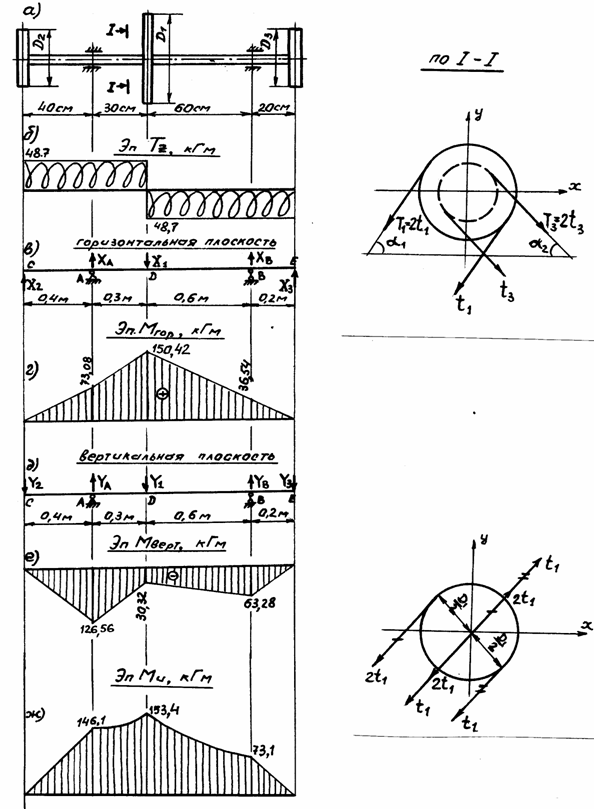 а)
I I
D₂ D₁ D₃
40см 30см 60см 20см
б) Эп Tz, кГм
48.7
48,7
в) горизонтальная плоскость
C X_A X₁ X_B E
X₂ A D B X₃
0,4м 0,3м 0,6м 0,2м
Эп. Mгор, кГм
150,42
г) 73,08 36,54
⊕
д) вертикальная плоскость
Y₂ Y_A Y₁ Y_B Y₃
C A D B E
0,4м 0,3м 0,6м 0,2м
е) Эп Mверт, кГм
⊖
126,56 30,32 63,28
Эп Mи, кГм
ж) 146,1 153,4 73,1
по I - I
y
x
T₁=2t₁ T₃=2t₃
α₁ α₂
t₁ t₃
y
t₁
2t₁
x
2t₁ 2t₁
t₁ t₁